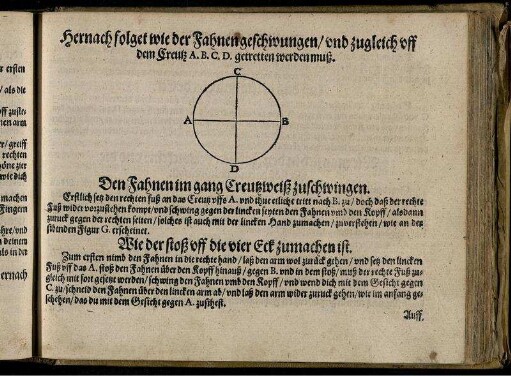 Hernach folget wie der Fahnen geschwungen / vnd zugleich vff
dem Creutz A. B. C. D. getretten werden muß.
C
A
B
D
Den Fahnen im gang Creutzweiß zuschwingen.
Erstlich setz den rechten fuß an das Creutz vffs A. vnd thue etliche tritt nach B. zu / doch daß der rechte
Fuß wider vorzustehen kompt / vnd schwing gegen der lincken seyten den Fahnen vmb den Kopff / alsdann
zuruck gegen der rechten seiten / solches ist auch mit der lincken Hand zumachen / zuverstehen / wie an der
Figur G. erscheinet.
Wie der stoß vff die vier Eck zumachen ist.
Zum ersten nimb den Fahnen in die rechte hand / laß den arm wol zurück gehen / vnd setz den lincken
Fuß vff das A. stoß den Fahnen über den Kopff hinauß / gegen B. vnd in dem stoß / muß der rechte Fuß zu-
gleich mit fort gesetzt werden / schwing den Fahnen vmb den Kopff / vnd wend dich mit dem Gesicht gegen
C. zu / schneid den Fahnen über den lincken arm ab / vnd laß den arm wider zurück gehen / wie im anfang ge-
schehen / das du mit dem Gesicht gegen A. zusihest.
Auff,
r ersten
/ als die
nen arm
er / greiff
rechten
wie dich
machen
Fingern
n deinen
als in der
ernach